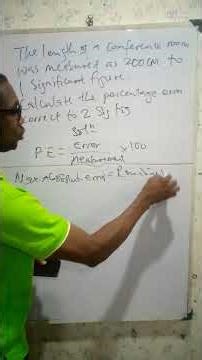 The length of a conference room
was measured as 200cm to
1 Significant figure
Calculate the percentage error
Correct to 2 Sig figs
Soln
PE = Error / measurement × 100